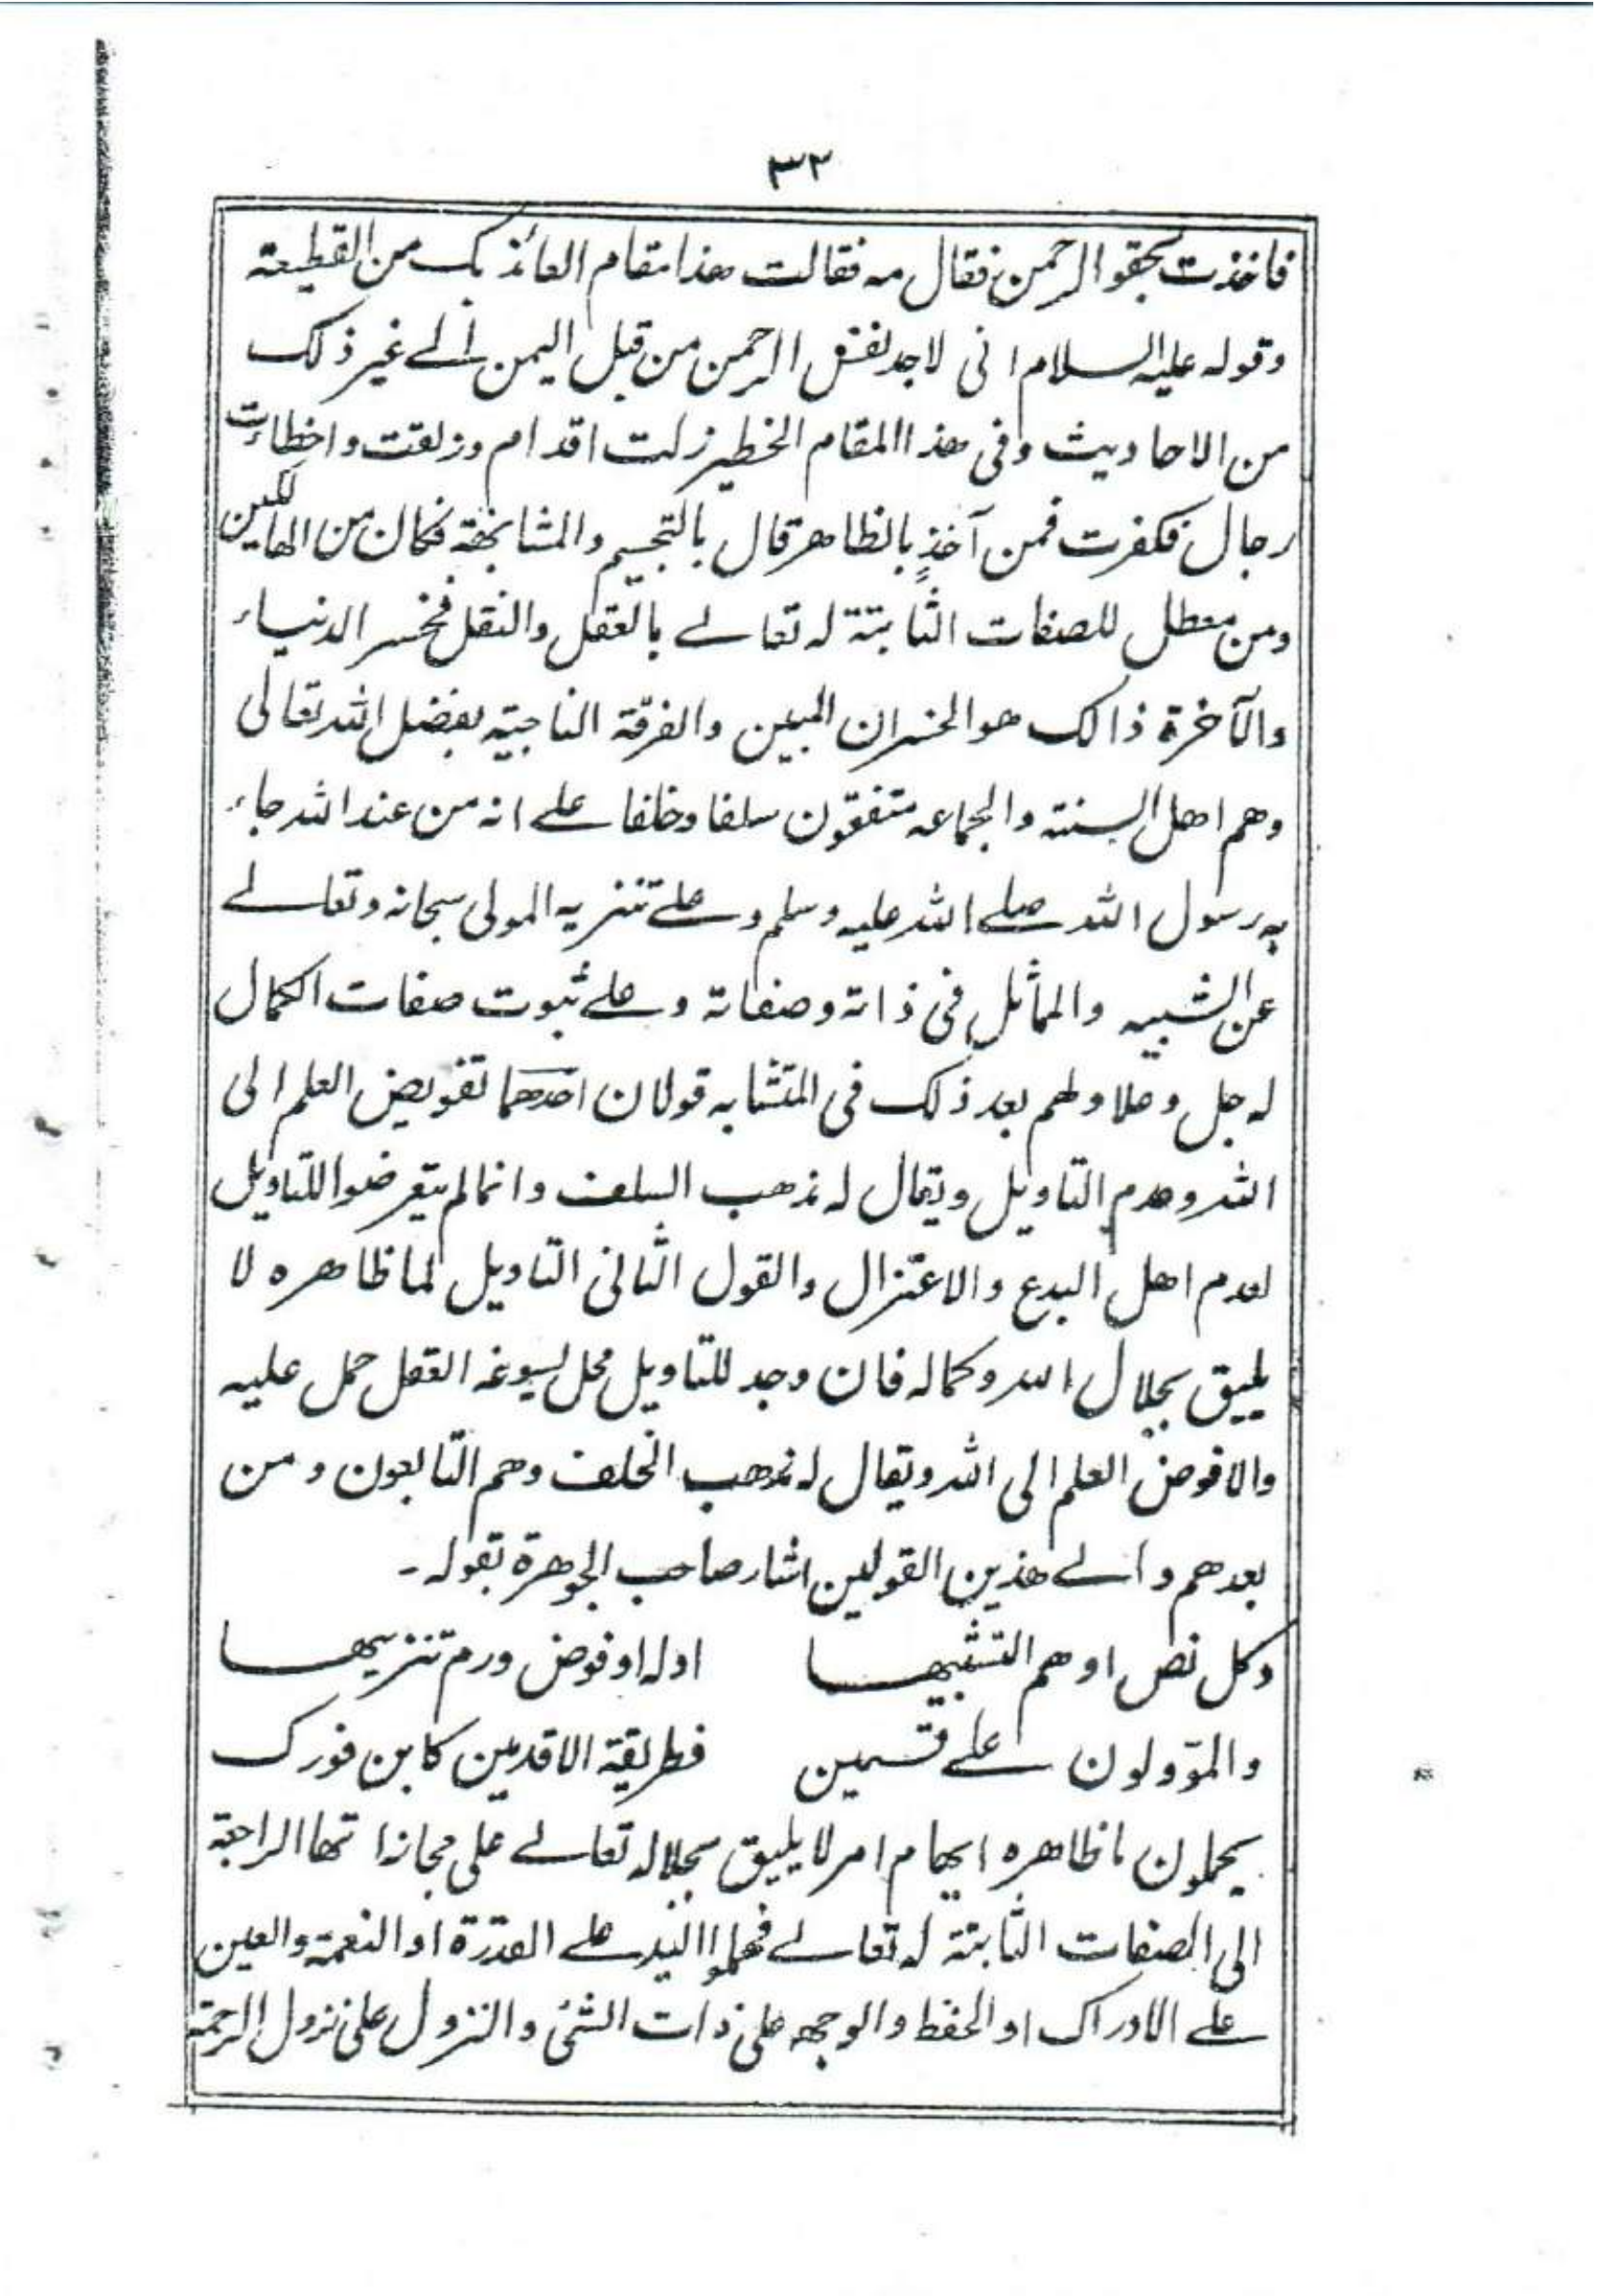 ٣٢
فاخذت بحقو الرحمن فقال مه فقالت هذا مقام العائذ بک من القطیعة
وقوله علیه السلام انی لاجد نفس الرحمن من قبل الیمن الے غیر ذلک
من الاحادیث وفی هذا المقام الخطیر زلت اقدام وزلقت واخطاءت
رجال فکفرت فمن آخذٍ بالظاهر قال بالتجسیم والمشابهة فکان من الهالکین
ومن معطل للصفات الثابتة له تعالے بالعقل والنقل فخسر الدنیاء
والآخرة ذالک هو الخسران المبین والفرقة الناجیة بفضل الله تعالی
وهم اهل السنة والجماعه متفقون سلفا وخلفا علے انه من عند الله جاء
به رسول الله صلے الله علیه وسلم وعلے تنزیه المولی سبحانه وتعالے
عن الشبیه والمماثل فی ذاته وصفاته وعلے ثبوت صفات الکمال
له جل وعلا ولهم بعد ذلک فی المتشابه قولان احدهما تفویض العلم الی
الله وعدم التاویل ویقال له مذهب السلف وانما لم یتعرضوا للتاویل
لعدم اهل البدع والاعتزال والقول الثانی التاویل لما ظاهره لا
یلیق بجلال الله وکماله فان وجد للتاویل محل یسوغه العقل حمل علیه
والا فوض العلم الی الله ویقال له مذهب الخلف وهم التابعون ومن
بعدهم والے هذین القولین اشار صاحب الجوهرة بقوله۔
وکل نص اوهم التشبیها اوله او فوض ورم تنزیها
والمؤولون علے قسمین فطریقة الاقدمین کابن فورک
یحملون ما ظاهره ایهام امر لا یلیق بجلاله تعالے علی مجازاتها الراجعة
الی الصفات الثابتة له تعالے فحملوا الید علے القدرة او النعمة والعین
علے الادراک او الحفظ والوجهه علی ذات الشئ والنزول علی نزول الرحمة